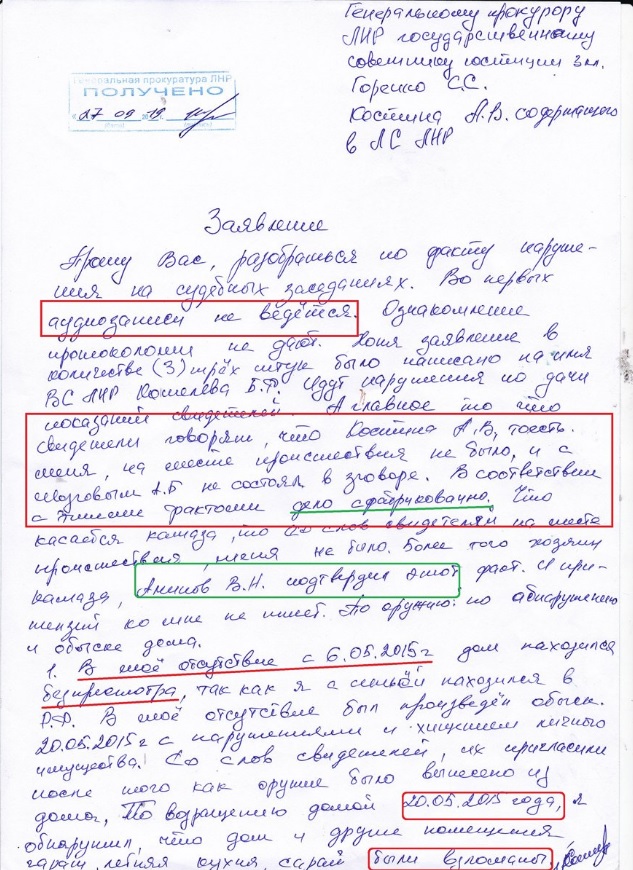 Генеральному прокурору
ЛНР государственному
советнику юстиции 3 кл.
Горенко С.С.
Костина А.В. содержащего
в ЛС ЛНР
Генеральная прокуратура ЛНР
ПОЛУЧЕНО
27 09 19
Заявление
Прошу Вас, разобраться по факту наруше-
ния на судебных заседаниях. Во первых
аудиозаписи не ведётся. Ознакомление
протоколоми не дают. Копия заявление в
количестве (3) трёх штук было написано на имя
ВС ЛНР Кошелева Б.Ф. Идут нарушения по дачи
показаний свидетелей. А главное то что
свидетели говорят, что Костина А.В, тоесть.
меня, на месте происшествия не было, и с
Мозговым А.Б не состоял в зговоре. В соответствии
с этими фактоми дело сфабрикованно. Что
касается камаза, то со слов свидетелям на месте
происшествия, меня не было. Более того хозяин
камаза, Анипов В.Н. подтвердил этот факт. И при-
тензий ко мне не имеет. По оружию: по обнаружению
и обыске дома.
1. В моё отсутствие с 6.05.2015г дом находился
безприсмотра, так как я с семьёй находился в
Р.Ф. В моё отсутствие был произведён обыск.
20.05.2015г с нарушениями и хищением личного
имущества. Со слов свидетелей, их пригласили
после того как оружие было вынесено из
дома, По возращению домой 20.05.2015 года, я
обнаружил, что дом и другие помещения
гараж, летняя кухня, сарай были взломаны,